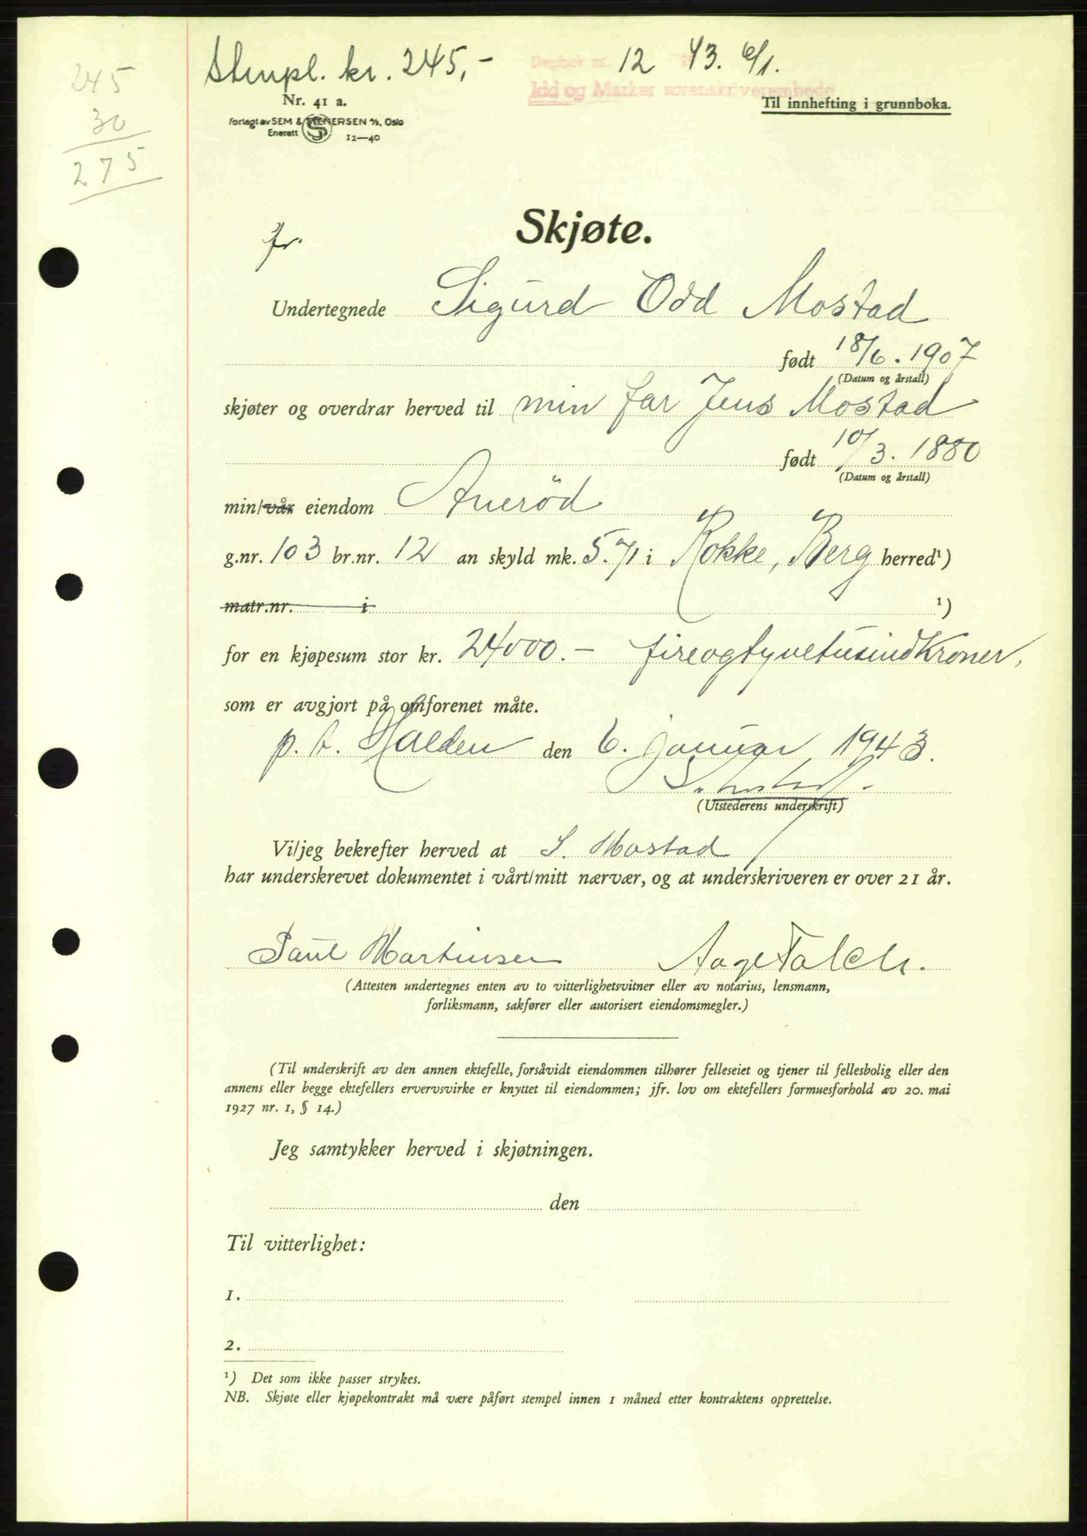 245
30
275
Stempl. kr. 245,-
Dagbok nr. 12 43. 6/1.
Idd og Marker sorenskriverembede
Nr. 41 a.
Til innhefting i grunnboka.
Forlagt av SEM & STENERSEN A/S, Oslo
Enerett S 12—40
Skjøte.
fr.
Undertegnede Sigurd Odd Mostad
født 18/6. 1907
(Datum og årstall)
skjøter og overdrar herved til min far Jens Mostad
født 10/3. 1880
(Datum og årstall)
min/vår eiendom Anerød
g.nr. 103 br.nr. 12 an skyld mk. 5.71 i Rokke, Berg herred¹)
matr.nr. i ¹)
for en kjøpesum stor kr. 24000.- fireogtyvetusindKroner,
som er avgjort på omforenet måte.
p. t. Halden den 6. januar 1943.
S. Mostad.
(Utstederens underskrift)
Vi/jeg bekrefter herved at S. Mostad
har underskrevet dokumentet i vårt/mitt nærvær, og at underskriveren er over 21 år.
Paul Martinsen Aage Falch.
(Attesten undertegnes enten av to vitterlighetsvitner eller av notarius, lensmann,
forliksmann, sakfører eller autorisert eiendomsmegler.)
(Til underskrift av den annen ektefelle, forsåvidt eiendommen tilhører felleseiet og tjener til fellesbolig eller den
annens eller begge ektefellers ervervsvirke er knyttet til eiendommen; jfr. lov om ektefellers formuesforhold av 20. mai
1927 nr. 1, § 14.)
Jeg samtykker herved i skjøtningen.
den
Til vitterlighet:
1.
2.
¹) Det som ikke passer strykes.
NB. Skjøte eller kjøpekontrakt må være påført stempel innen 1 måned etter kontraktens opprettelse.